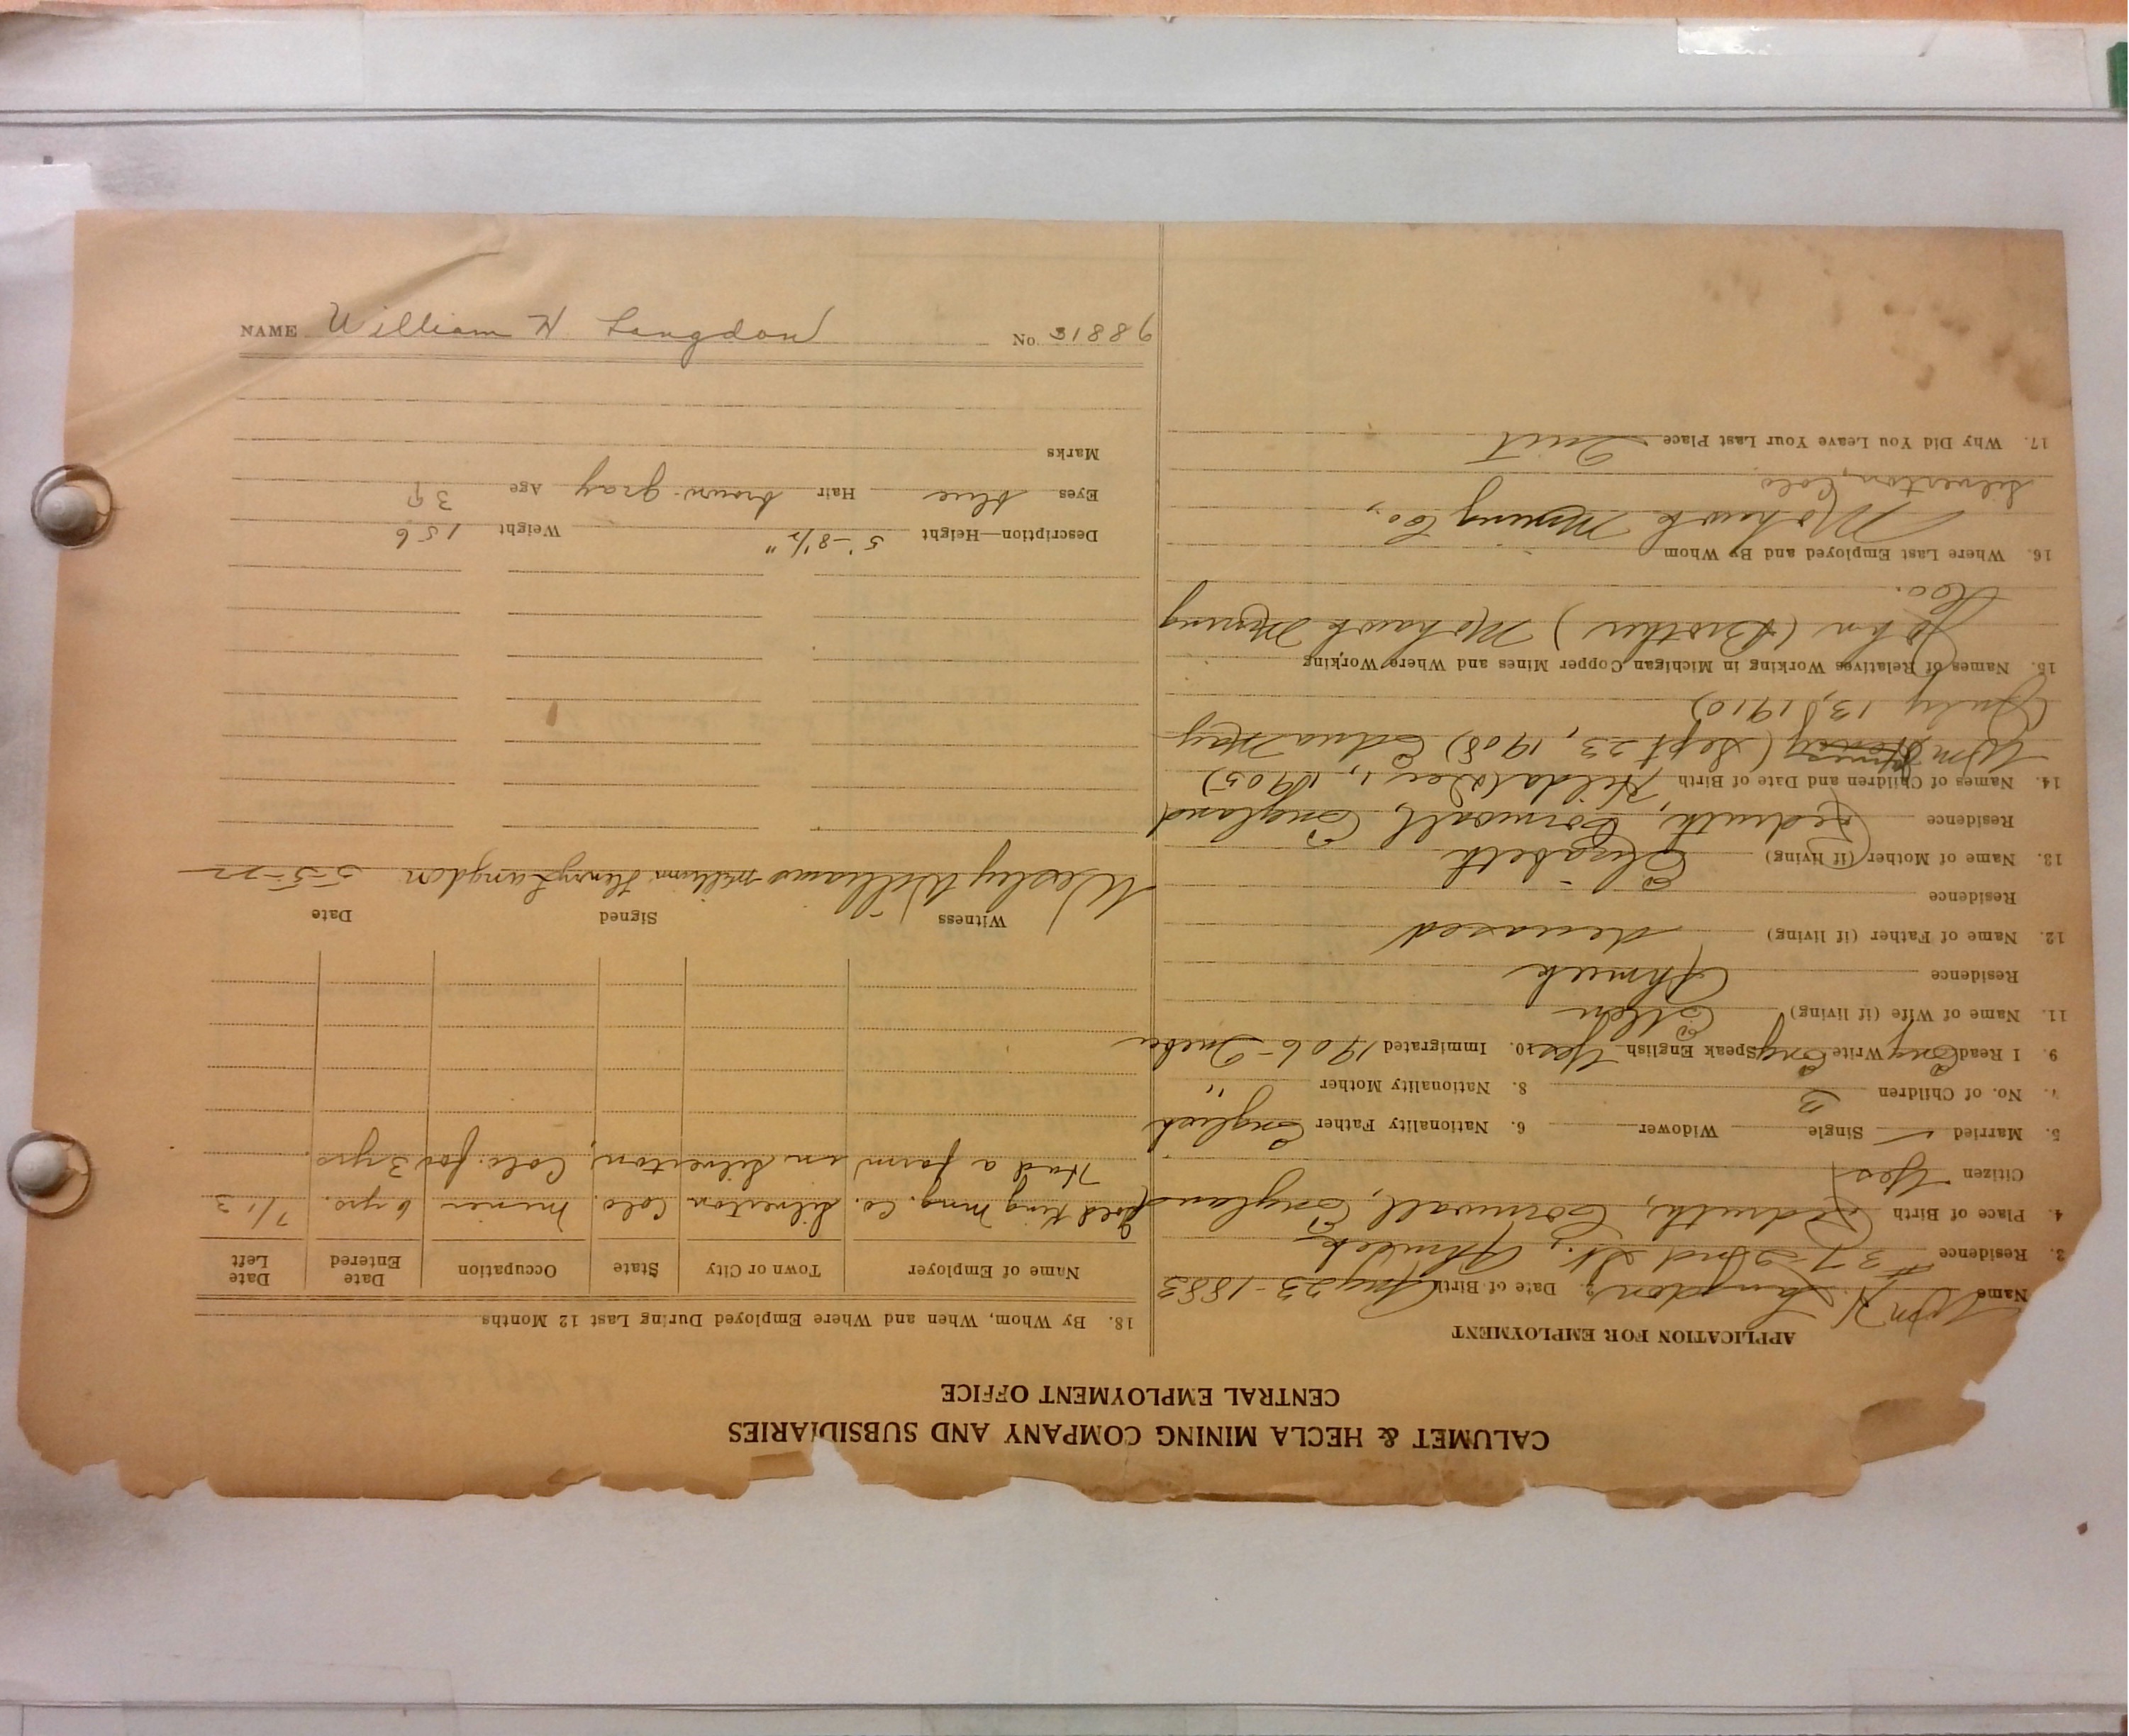 CALUMET & HECLA MINING COMPANY AND SUBSIDIARIES
CENTRAL EMPLOYMENT OFFICE
APPLICATION FOR EMPLOYMENT
Name Wm H. Langdon, 2. Date of Birth Aug 23-1883
3. Residence #37-2nd St., Ahmeek
4. Place of Birth Redruth, Cornwall, England
Citizen Yes
5. Married ✓ Single Widower 6. Nationality Father English
7. No. of Children 3 8. Nationality Mother "
9. I Read Eng Write Eng Speak English Yes 10. Immigrated 1906-
11. Name of Wife (if living) Ellen
Residence Ahmeek
12. Name of Father (if living) deceased
Residence
13. Name of Mother (if living) Elizabeth
Residence Redruth, Cornwall, England
14. Names of Children and Date of Birth Hilda (Dec 1, 1905)
Wm Henry (Sept 23, 1908) Edna May
(July 13, 1910)
15. Names of Relatives Working in Michigan Copper Mines and Where Working
John (Brother) Mohawk Mining
Co.
16. Where Last Employed and By Whom
Mohawk Mining Co.,
Silverton, Colo
17. Why Did You Leave Your Last Place Quit
18. By Whom, When and Where Employed During Last 12 Months
Name of Employer Town or City State Occupation Date Entered Date Left
Gold King Mng. Co. Silverton Colo. miner 6 yrs. 7/13
Had a farm in Silverton, Colo. for 3 yrs.
Witness Signed Date
Wesley Williams William Henry Langdon 5-5-22
Description—Height 5'-8½" Weight 156
Eyes blue Hair brown-gray Age 39
Marks
NAME William H Langdon No. 31889